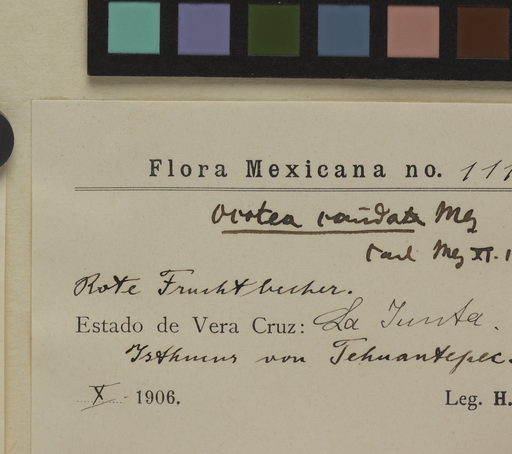 Flora Mexicana no. 111
Ocotea caudata Mez
Carl Mez XI. 1
Rote Fruchtbecher.
Estado de Vera Cruz: La Junta.
Isthmus von Tehuantepec.
X 1906.
Leg. H.